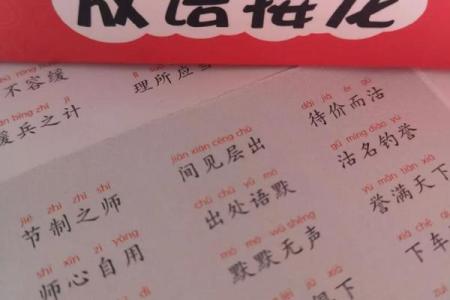 成语接龙
不容缓
bīng zhī jì
缓兵之计
jié zhì zhī shī
节制之师
shī xīn zì yòng
师心自用
理所应当
jiàn xiàn céng chū
间见层出
chū chǔ yǔ mò
出处语默
mò mò wú shēng
默默无声
dài jià ér gū
待价而沽
gū míng diào yù
沽名钓誉
yù mǎn tiān xià
誉满天下
xià chē
下车